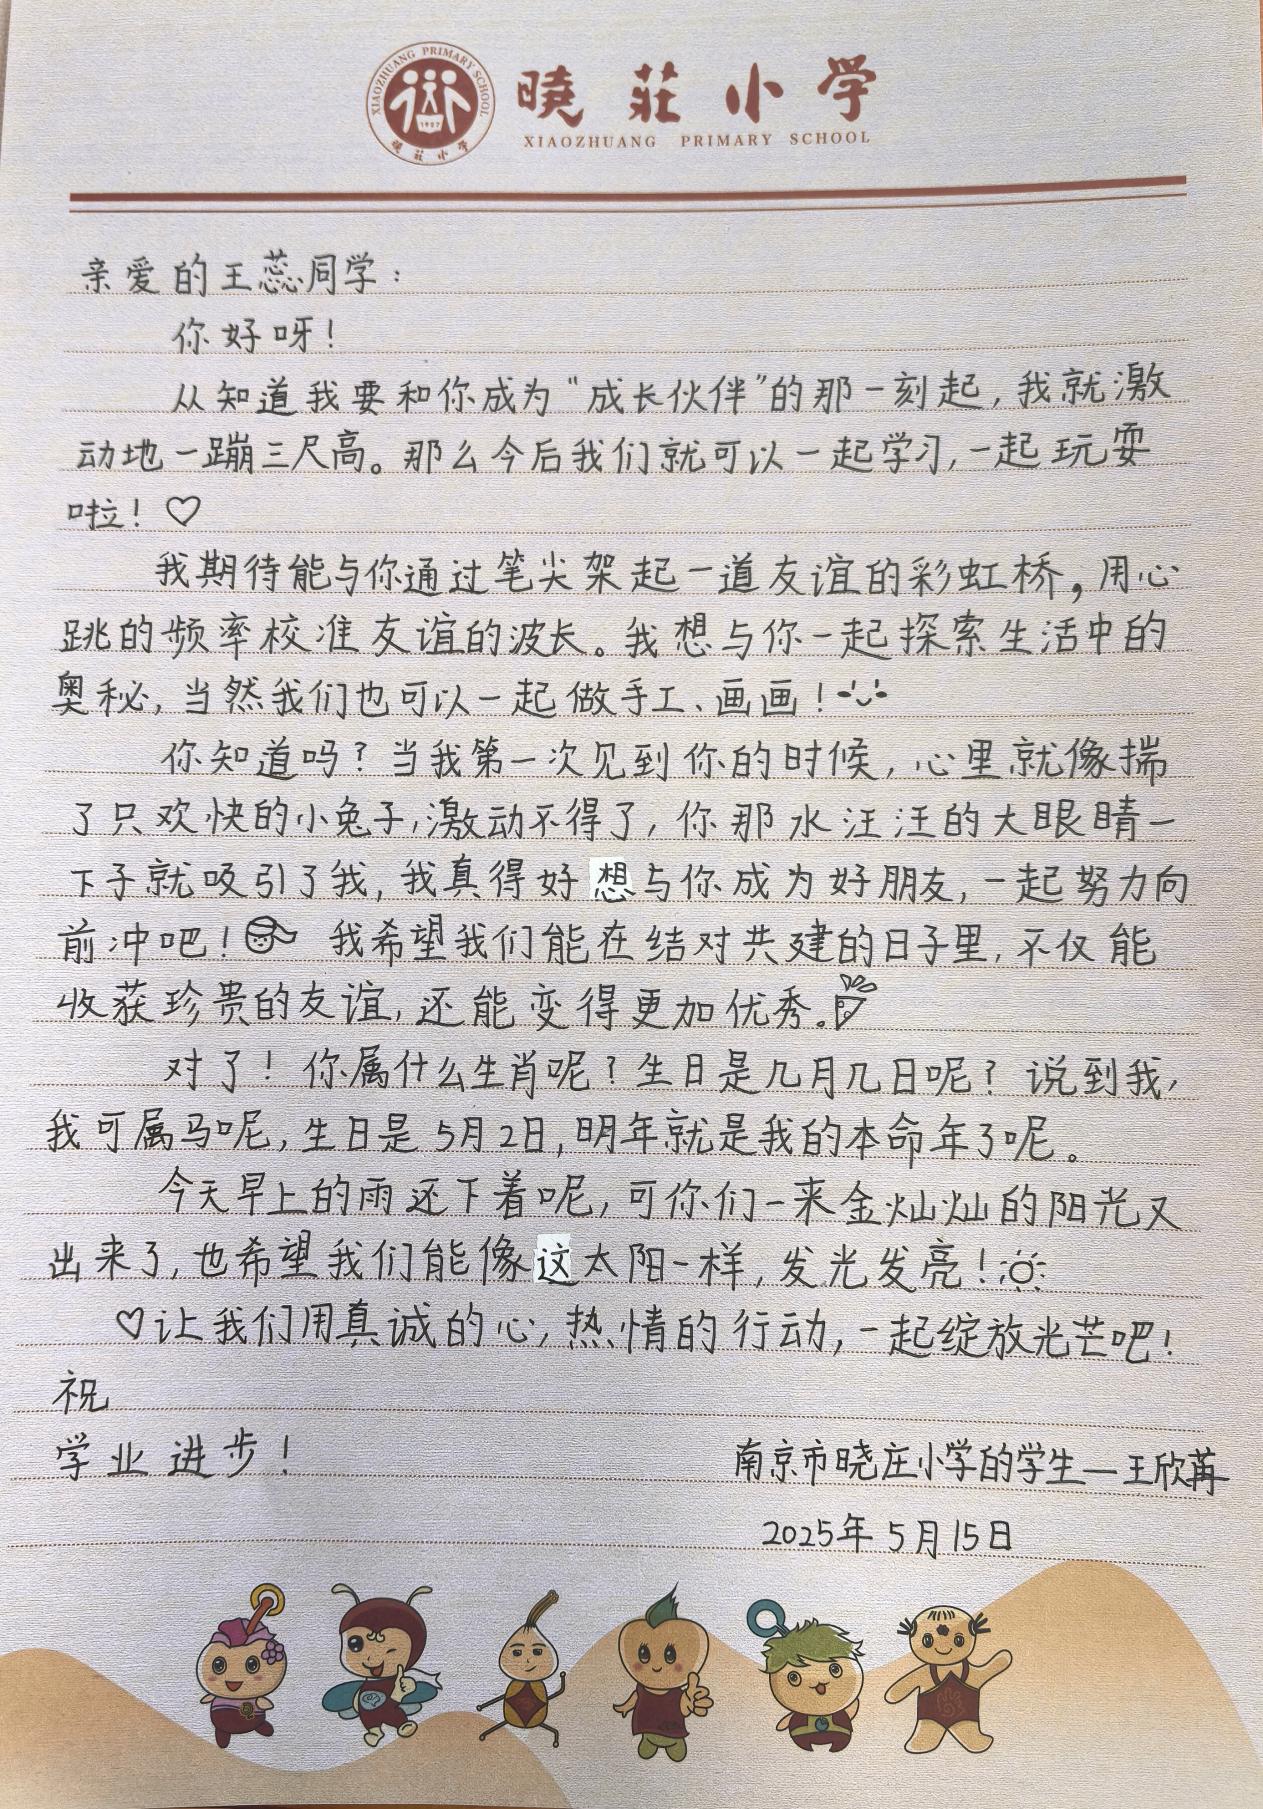 XIAOZHUANG PRIMARY SCHOOL
1927
曉莊小学
曉莊小学
XIAOZHUANG PRIMARY SCHOOL
亲爱的王蕊同学：
你好呀！
从知道我要和你成为“成长伙伴”的那一刻起，我就激
动地一蹦三尺高。那么今后我们就可以一起学习，一起玩耍
啦！♡
我期待能与你通过笔尖架起一道友谊的彩虹桥，用心
跳的频率校准友谊的波长。我想与你一起探索生活中的
奥秘，当然我们也可以一起做手工、画画！
你知道吗？当我第一次见到你的时候，心里就像揣
了只欢快的小兔子，激动不得了，你那水汪汪的大眼睛一
下子就吸引了我，我真得好想与你成为好朋友，一起努力向
前冲吧！我希望我们能在结对共建的日子里，不仅能
收获珍贵的友谊，还能变得更加优秀。
对了！你属什么生肖呢？生日是几月几日呢？说到我，
我可属马呢，生日是5月2日，明年就是我的本命年了呢。
今天早上的雨还下着呢，可你们一来金灿灿的阳光又
出来了，也希望我们能像这太阳一样，发光发亮！
♡让我们用真诚的心，热情的行动，一起绽放光芒吧！
祝
学业进步！
南京市晓庄小学的学生—王欣苒
2025年5月15日